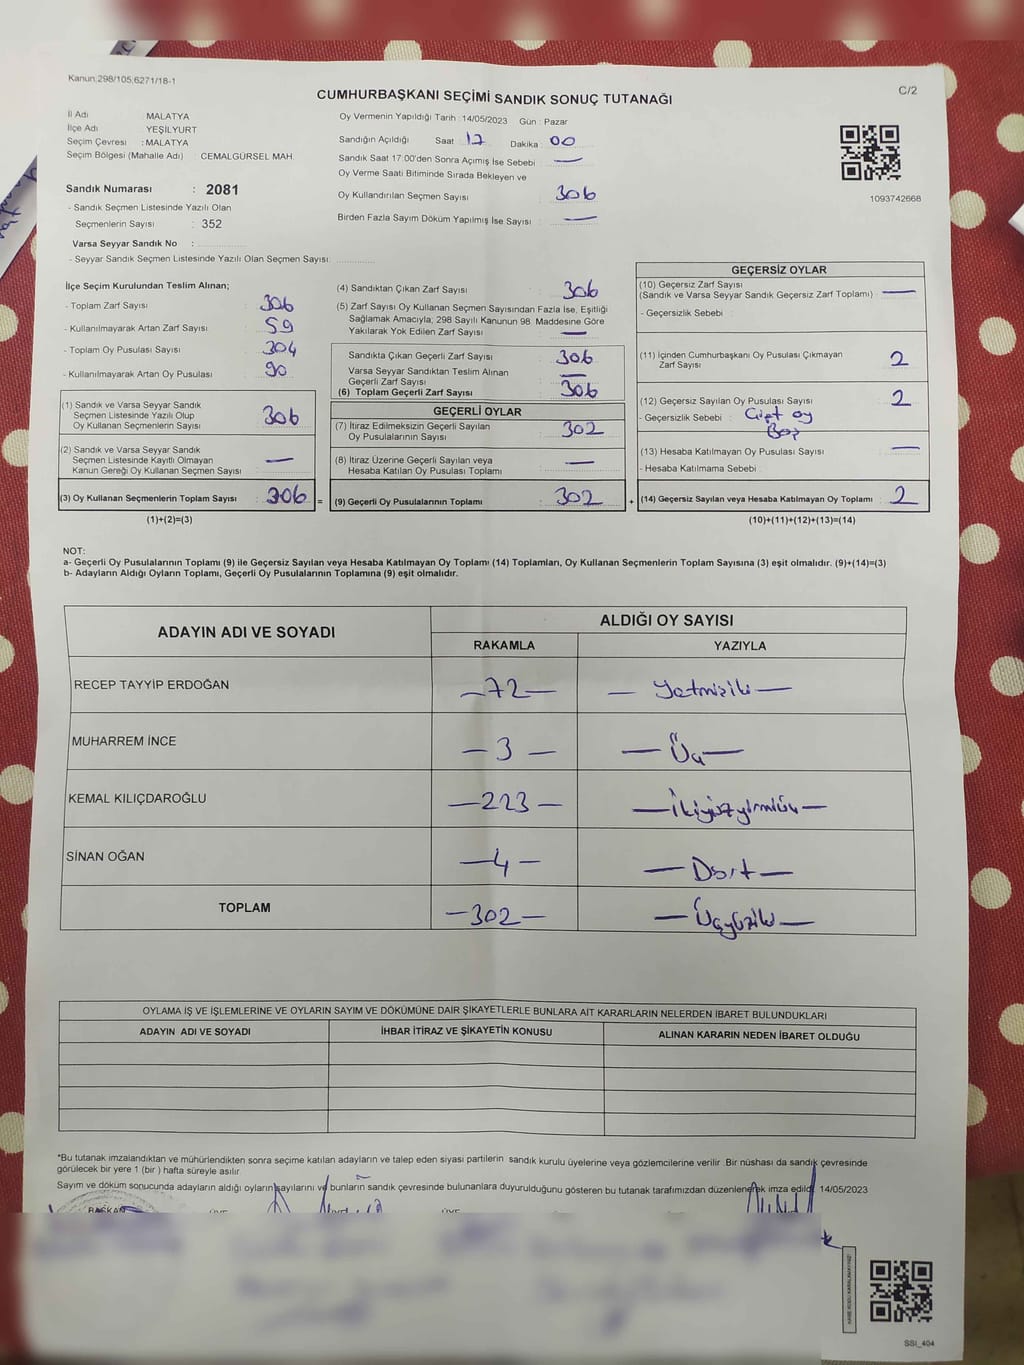 Kanun:298/105;6271/18-1
C/2
CUMHURBAŞKANI SEÇİMİ SANDIK SONUÇ TUTANAĞI
İl Adı MALATYA
İlçe Adı YEŞİLYURT
Seçim Çevresi : MALATYA
Seçim Bölgesi (Mahalle Adı) CEMALGÜRSEL MAH.
Sandık Numarası : 2081
- Sandık Seçmen Listesinde Yazılı Olan
Seçmenlerin Sayısı : 352
Varsa Seyyar Sandık No :
- Seyyar Sandık Seçmen Listesinde Yazılı Olan Seçmen Sayısı:
Oy Vermenin Yapıldığı Tarih : 14/05/2023 Gün : Pazar
Sandığın Açıldığı Saat 17 Dakika : 00
Sandık Saat 17:00'den Sonra Açımış İse Sebebi —
Oy Verme Saati Bitiminde Sırada Bekleyen ve
Oy Kullandırılan Seçmen Sayısı 306
Birden Fazla Sayım Döküm Yapılmış İse Sayısı —
1093742668
İlçe Seçim Kurulundan Teslim Alınan;
- Toplam Zarf Sayısı : 306
- Kullanılmayarak Artan Zarf Sayısı : 59
- Toplam Oy Pusulası Sayısı : 304
- Kullanılmayarak Artan Oy Pusulası : 90
(1) Sandık ve Varsa Seyyar Sandık
Seçmen Listesinde Yazılı Olup
Oy Kullanan Seçmenlerin Sayısı : 306
(2) Sandık ve Varsa Seyyar Sandık
Seçmen Listesinde Kayıtlı Olmayan
Kanun Gereği Oy Kullanan Seçmen Sayısı —
(3) Oy Kullanan Seçmenlerin Toplam Sayısı : 306 =
(1)+(2)=(3)
(4) Sandıktan Çıkan Zarf Sayısı : 306
(5) Zarf Sayısı Oy Kullanan Seçmen Sayısından Fazla İse, Eşitliği
Sağlamak Amacıyla; 298 Sayılı Kanunun 98. Maddesine Göre
Yakılarak Yok Edilen Zarf Sayısı : —
Sandıkta Çıkan Geçerli Zarf Sayısı : 306
Varsa Seyyar Sandıktan Teslim Alınan
Geçerli Zarf Sayısı : —
(6) Toplam Geçerli Zarf Sayısı : 306
GEÇERLİ OYLAR
(7) İtiraz Edilmeksizin Geçerli Sayılan
Oy Pusulalarının Sayısı : 302
(8) İtiraz Üzerine Geçerli Sayılan veya
Hesaba Katılan Oy Pusulası Toplamı : —
(9) Geçerli Oy Pusulalarının Toplamı : 302 +
GEÇERSİZ OYLAR
(10) Geçersiz Zarf Sayısı
(Sandık ve Varsa Seyyar Sandık Geçersiz Zarf Toplamı) : —
- Geçersizlik Sebebi :
(11) İçinden Cumhurbaşkanı Oy Pusulası Çıkmayan
Zarf Sayısı : 2
(12) Geçersiz Sayılan Oy Pusulası Sayısı : 2
- Geçersizlik Sebebi : Çift oy
Boş
(13) Hesaba Katılmayan Oy Pusulası Sayısı : —
- Hesaba Katılmama Sebebi :
(14) Geçersiz Sayılan veya Hesaba Katılmayan Oy Toplamı : 2
(10)+(11)+(12)+(13)=(14)
NOT:
a- Geçerli Oy Pusulalarının Toplamı (9) ile Geçersiz Sayılan veya Hesaba Katılmayan Oy Toplamı (14) Toplamları, Oy Kullanan Seçmenlerin Toplam Sayısına (3) eşit olmalıdır. (9)+(14)=(3)
b- Adayların Aldığı Oyların Toplamı, Geçerli Oy Pusulalarının Toplamına (9) eşit olmalıdır.
ADAYIN ADI VE SOYADI ALDIĞI OY SAYISI
RAKAMLA YAZIYLA
RECEP TAYYİP ERDOĞAN —72— — Yetmişiki —
MUHARREM İNCE — 3 — — Üç —
KEMAL KILIÇDAROĞLU — 223 — — İkiyüzyirmiüç —
SİNAN OĞAN — 4 — — Dört —
TOPLAM — 302 — — Üçyüziki —
OYLAMA İŞ VE İŞLEMLERİNE VE OYLARIN SAYIM VE DÖKÜMÜNE DAİR ŞİKAYETLERLE BUNLARA AİT KARARLARIN NELERDEN İBARET BULUNDUKLARI
ADAYIN ADI VE SOYADI İHBAR İTİRAZ VE ŞİKAYETİN KONUSU ALINAN KARARIN NEDEN İBARET OLDUĞU
*Bu tutanak imzalandıktan ve mühürlendikten sonra seçime katılan adayların ve talep eden siyasi partilerin sandık kurulu üyelerine veya gözlemcilerine verilir. Bir nüshası da sandık çevresinde
görülecek bir yere 1 (bir ) hafta süreyle asılır.
Sayım ve döküm sonucunda adayların aldığı oyların sayılarını ve bunların sandık çevresinde bulunanlara duyurulduğunu gösteren bu tutanak tarafımızdan düzenlenerek imza edildi. 14/05/2023
BAŞKAN ÜYE ÜYE
SSI_404